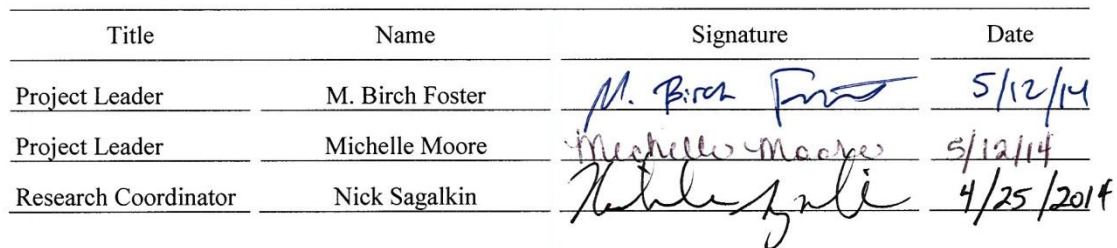 Title Name Signature Date
Project Leader M. Birch Foster M. Birch Foster 5/12/14
Project Leader Michelle Moore Michelle Moore 5/12/14
Research Coordinator Nick Sagalkin 4/25/2014